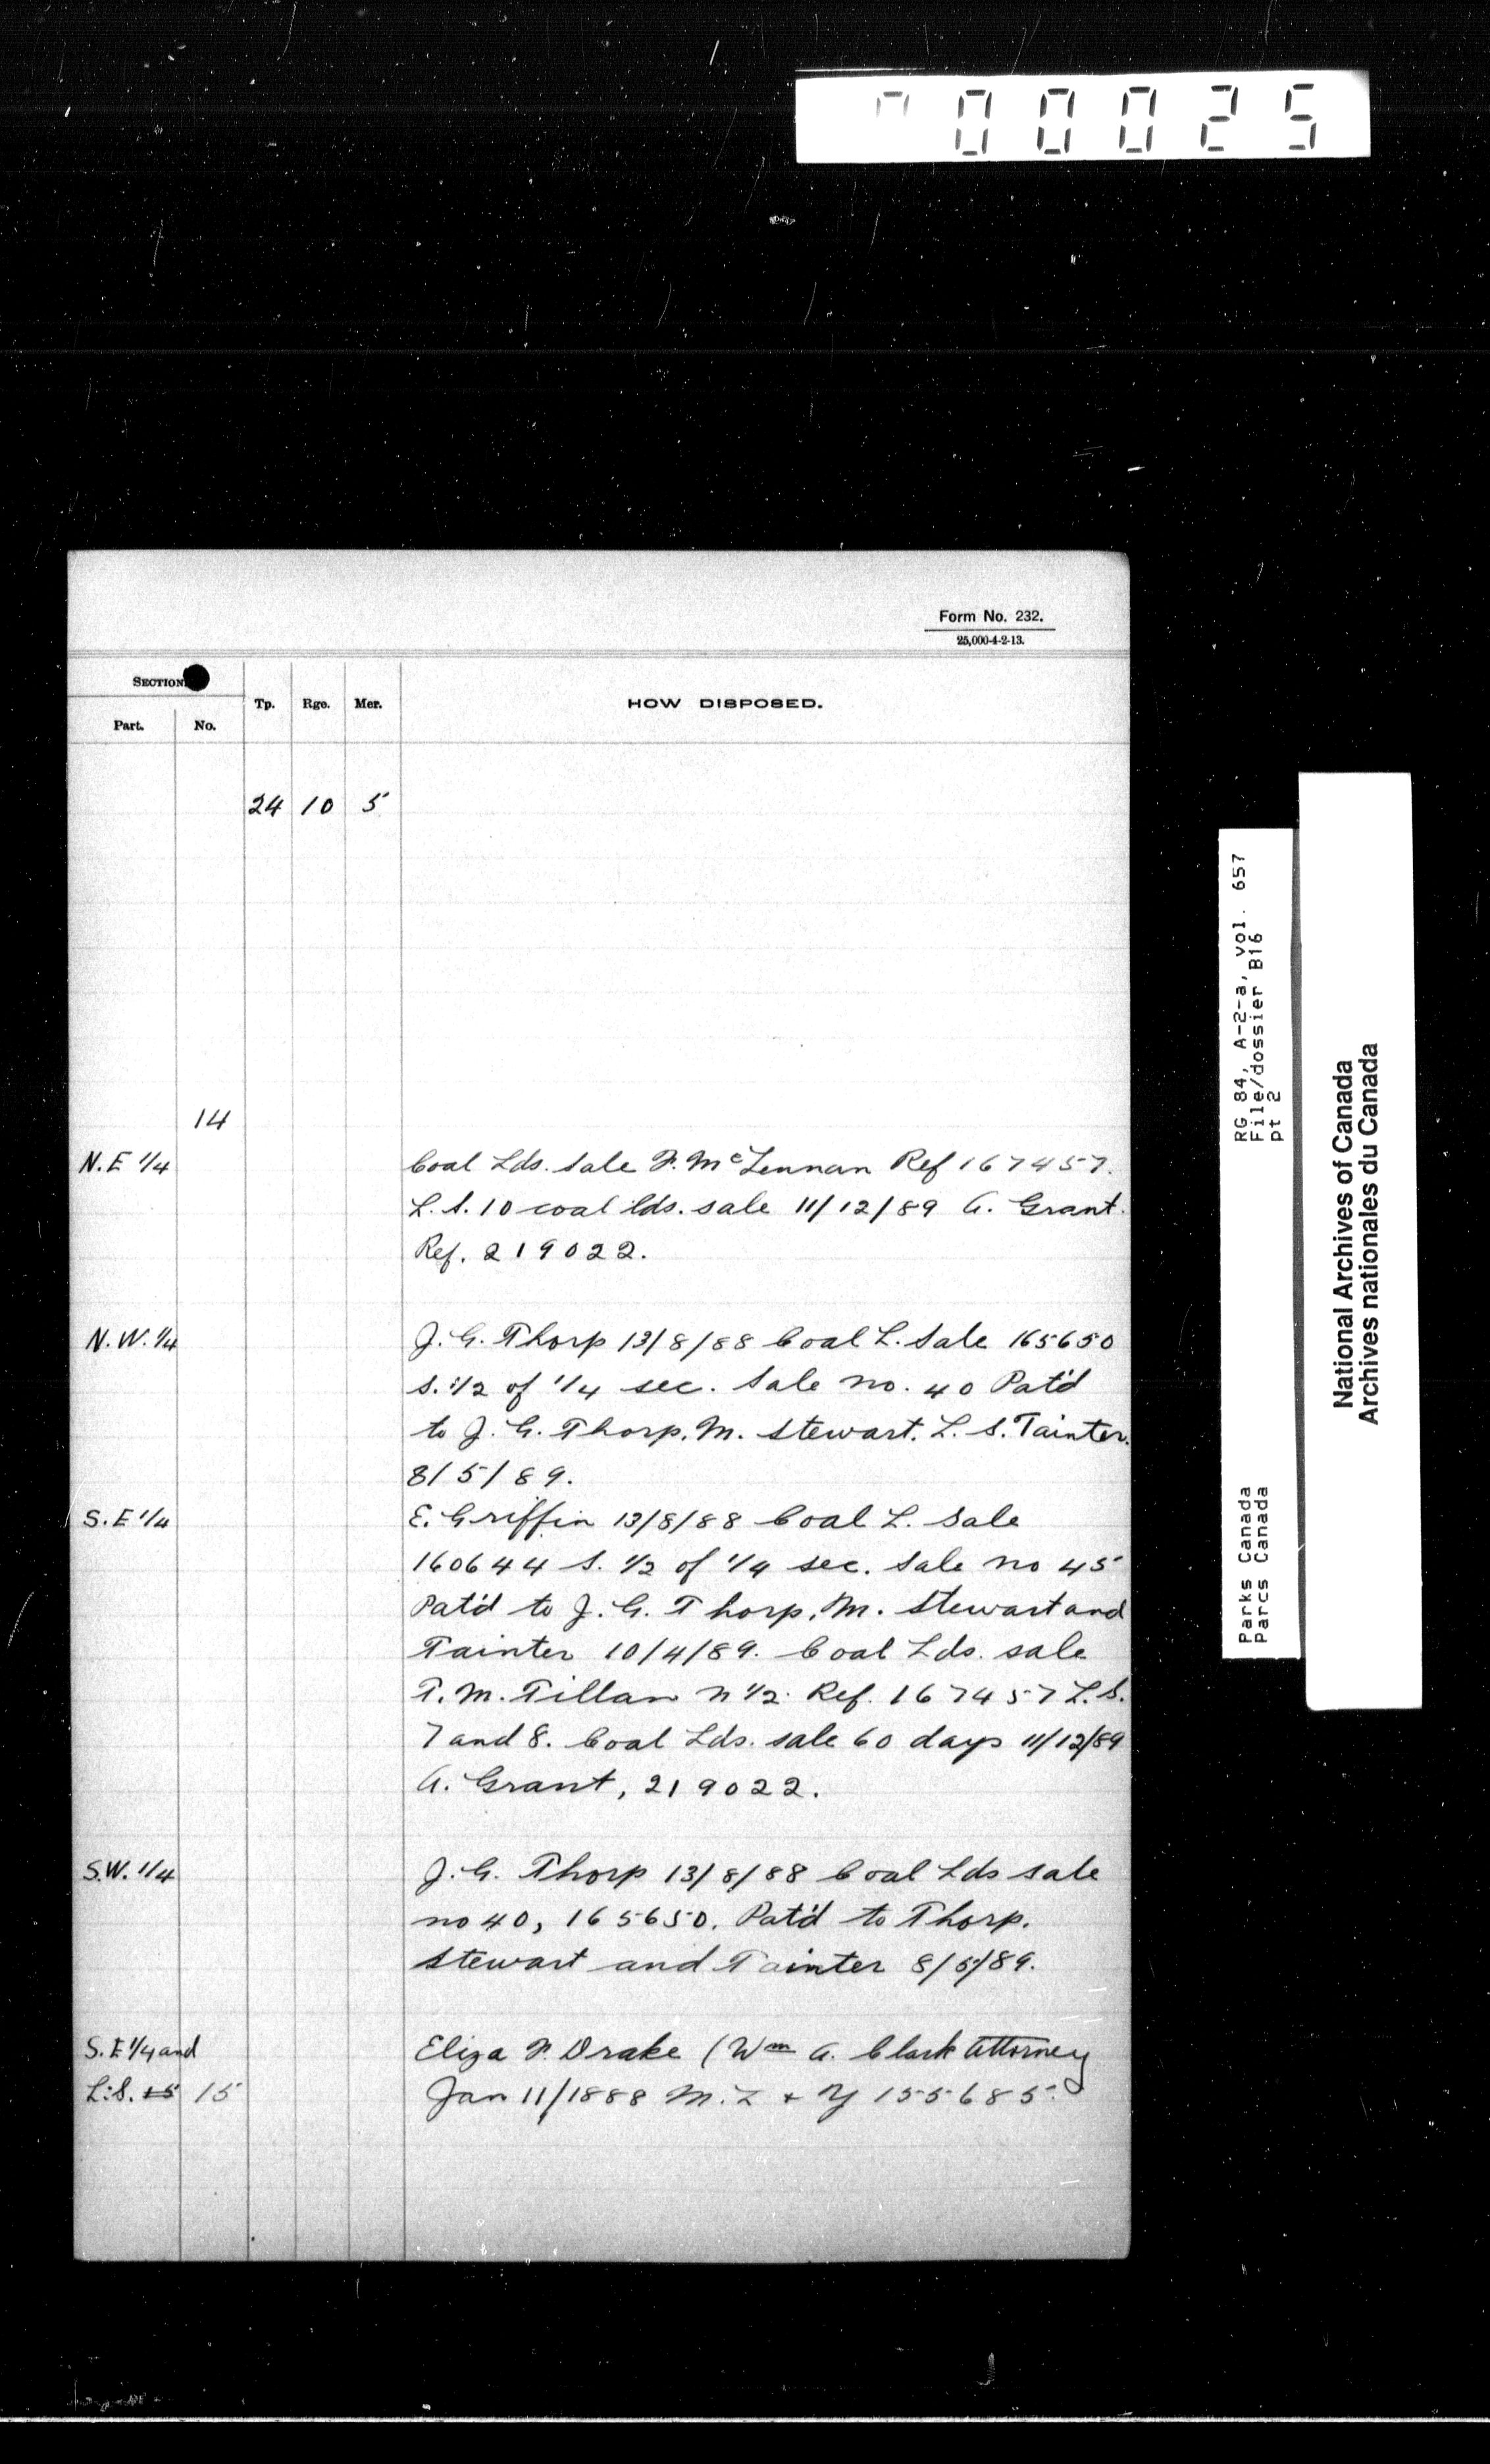 000025
Form No. 232.
25,000-4-2-13.
SECTION
Part.
No.
Tp.
Rge.
Mer.
HOW DISPOSED.
24 10 5
14
N.E 1/4 Coal Lds. Sale F. McLennan Ref 167457.
L.S. 10 coal lds. sale 11/12/89 A. Grant.
Ref. 219022.
N.W. 1/4 J.G. Thorp 13/8/88 Coal L. Sale 165650
S. 1/2 of 1/4 sec. Sale no. 40 Pat'd
to J.G. Thorp, M. Stewart. L.S. Tainter.
8/5/89.
S.E 1/4 E. Griffin 13/8/88 Coal L. Sale
160644 S. 1/2 of 1/4 sec. Sale no 45
Pat'd to J.G. Thorp, M. Stewart and
Tainter 10/4/89. Coal Lds. sale
T.M. Tillan N 1/2. Ref. 167457 L.S.
7 and 8. Coal Lds. sale 60 days 11/12/89
A. Grant, 219022.
S.W. 1/4 J.G. Thorp 13/8/88 Coal Lds sale
no 40, 165650. Pat'd to Thorp.
Stewart and Tainter 8/5/89.
S.E 1/4 and Eliza F. Drake (Wm A. Clark Attorney
L.S. 15 15 Jan 11/1888 M. L + Y 155685.
RG 84, A-2-a, vol. 657
File/dossier B16
pt 2
Parks Canada
Parcs Canada
National Archives of Canada
Archives nationales du Canada